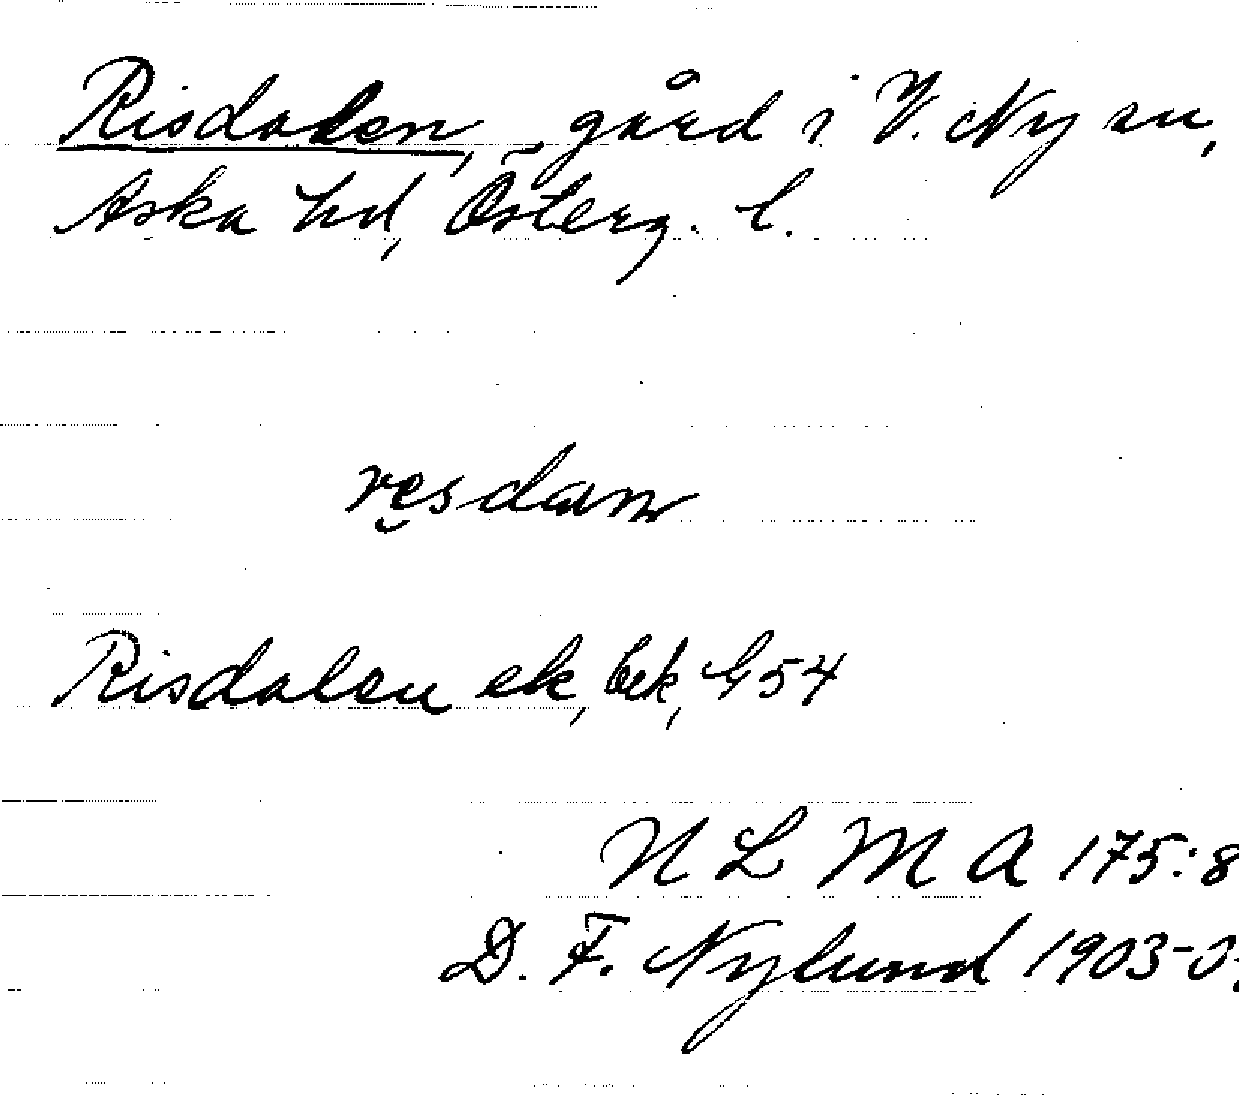 Risdalen, gård i V. Ny sn,
Aska hd, Österg. l.
resdarn
Risdalen ek, bek, G54
N L M A 175:8
D. F. Nylund 1903-0